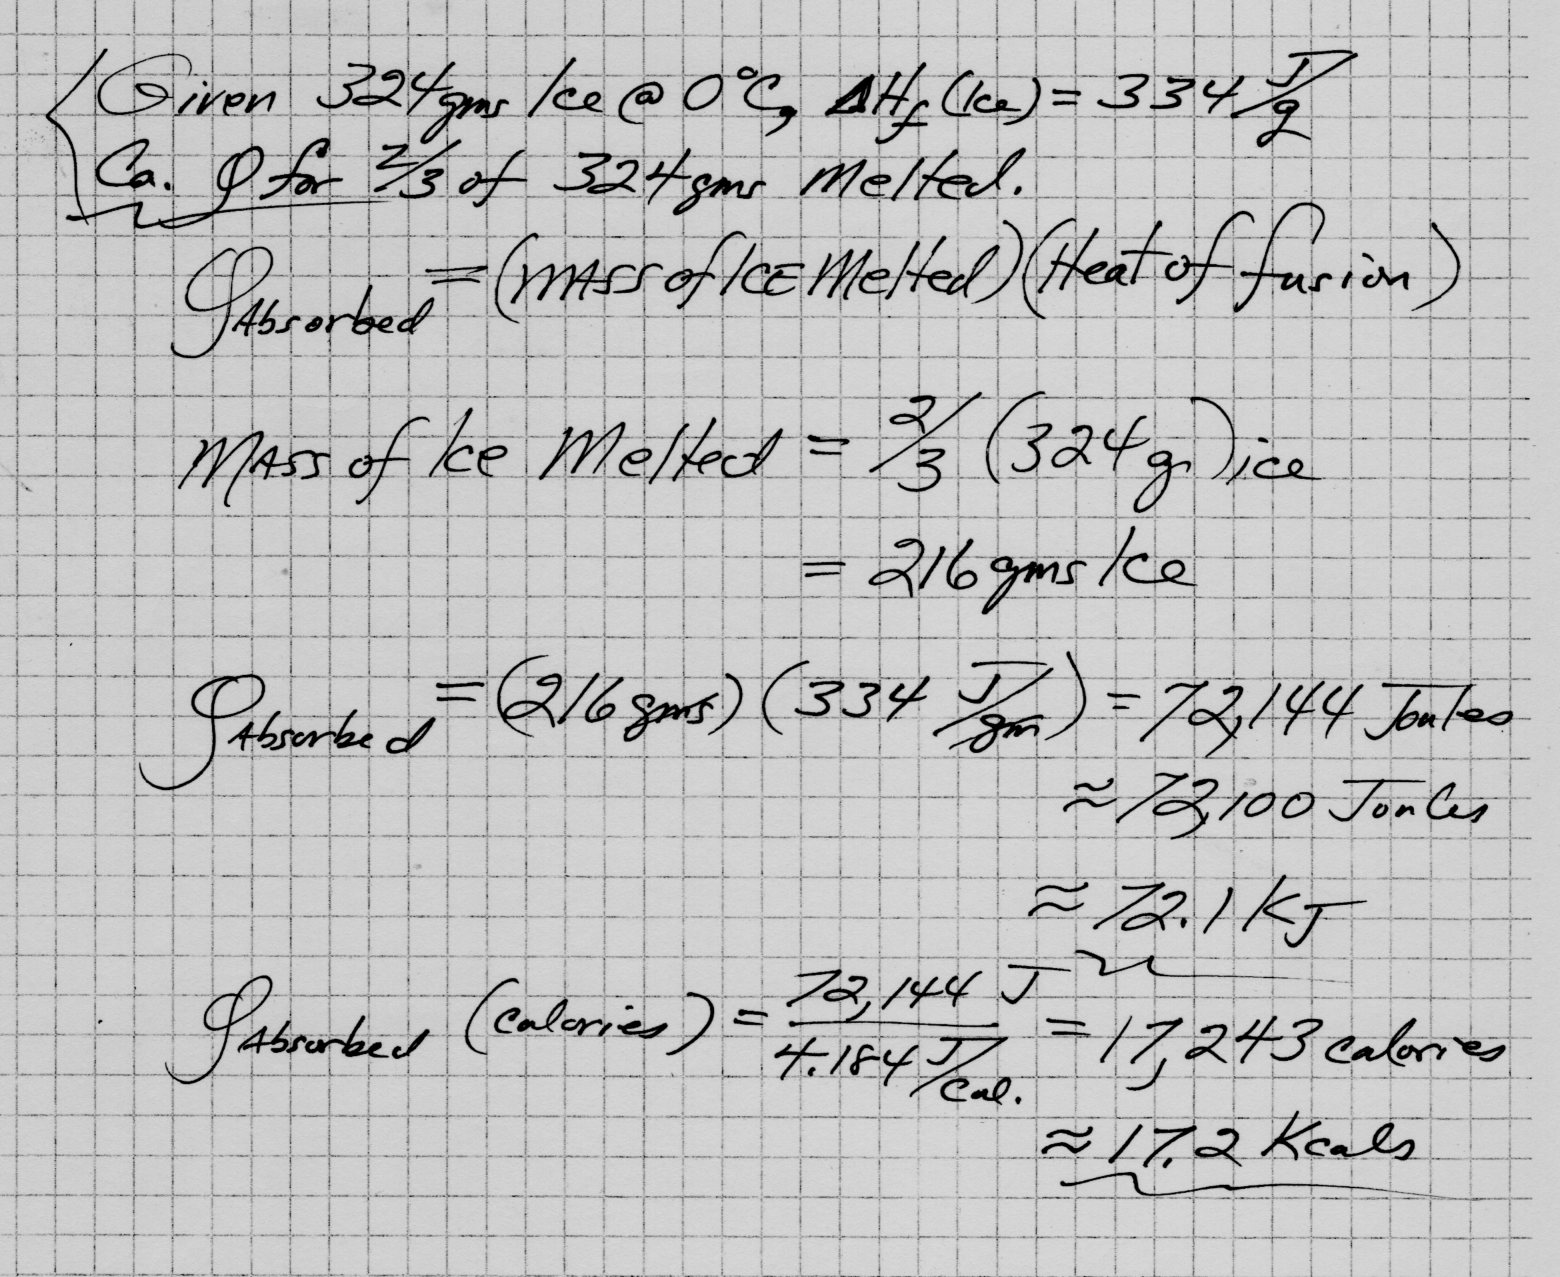 Given 324gms Ice @ 0°C, ΔHf (Ice) = 334 J/g
Ca. Q for 2/3 of 324gms Melted.
QAbsorbed = (MASS of ICE Melted)(Heat of fusion)
MASS of Ice Melted = 2/3 (324g)ice
= 216gms Ice
QAbsorbed = (216gms) (334 J/gm) = 72,144 Joules
≈ 72,100 Joules
≈ 72.1 KJ
QAbsorbed (calories) = 72,144 J / 4.184 J/cal. = 17,243 calories
≈ 17.2 Kcals